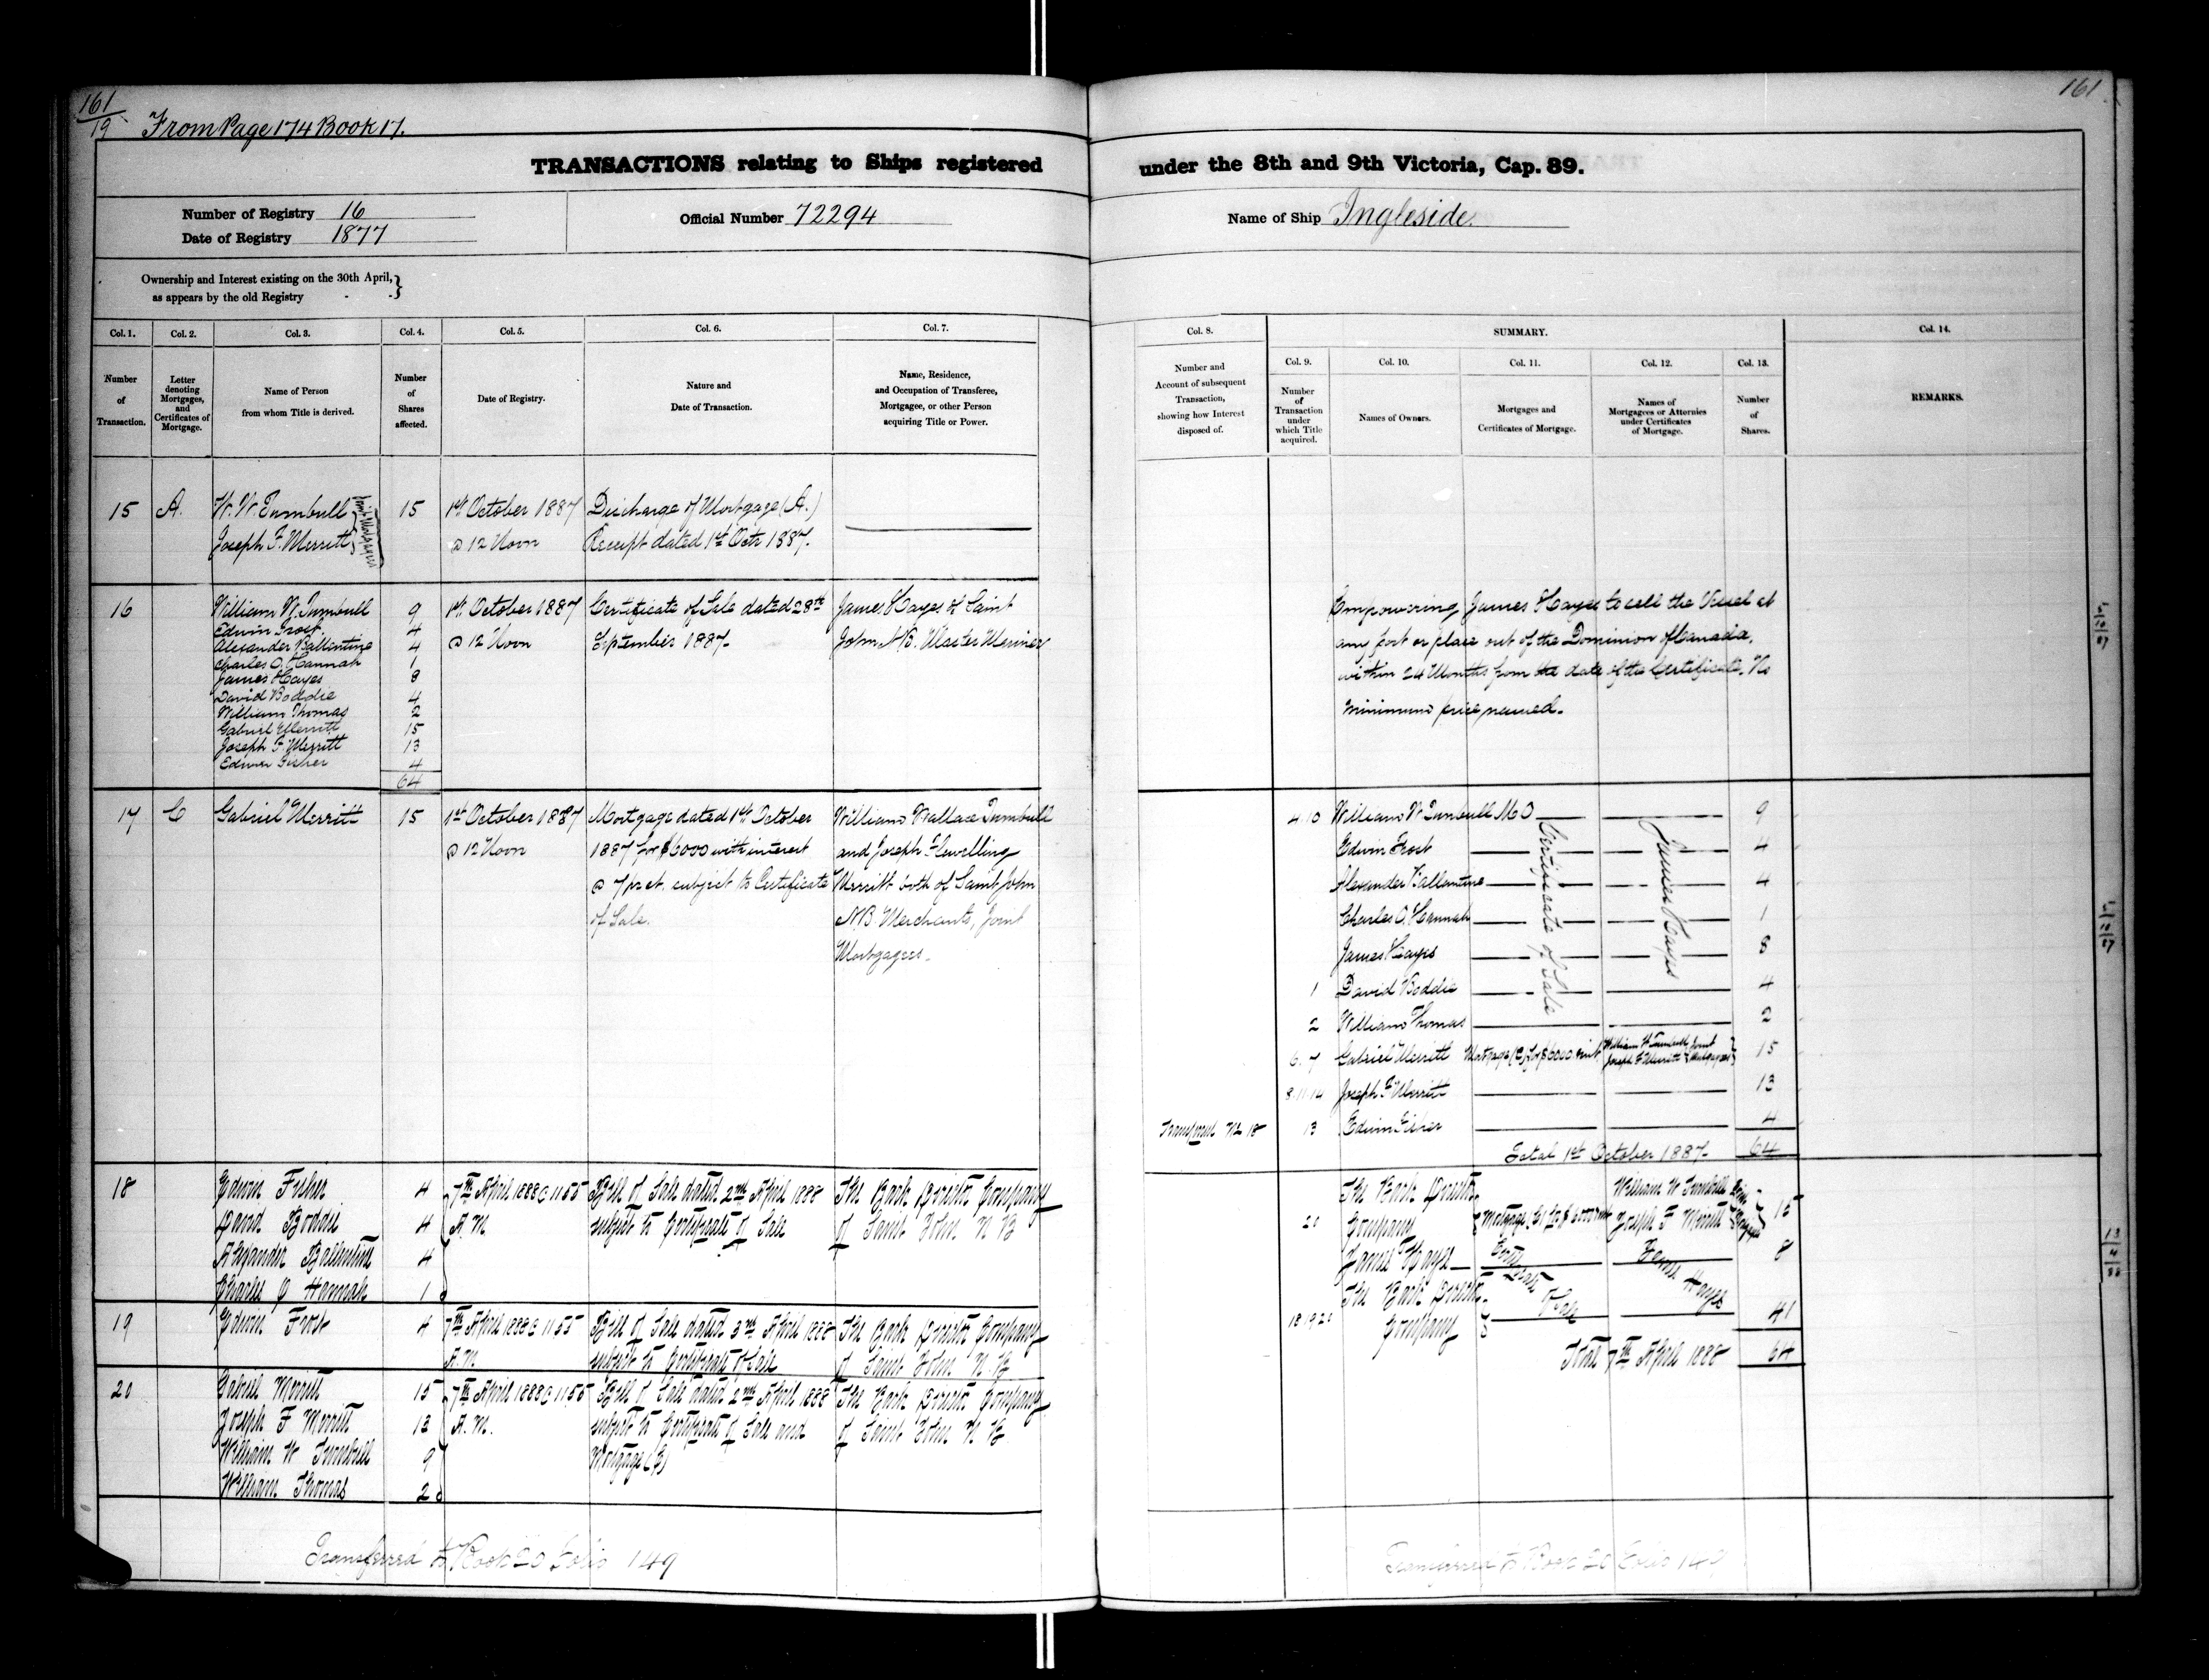 161
19
From Page 174 Book 17.
161
TRANSACTIONS relating to Ships registered under the 8th and 9th Victoria, Cap. 89.
Number of Registry 16
Date of Registry 1877
Official Number 72294
Name of Ship Ingleside.
Ownership and Interest existing on the 30th April,
as appears by the old Registry
Col. 1.
Number
of
Transaction.
Col. 2.
Letter
denoting
Mortgages,
and
Certificates of
Mortgage.
Col. 3.
Name of Person
from whom Title is derived.
Col. 4.
Number
of
Shares
affected.
Col. 5.
Date of Registry.
Col. 6.
Nature and
Date of Transaction.
Col. 7.
Name, Residence,
and Occupation of Transferee,
Mortgagee, or other Person
acquiring Title or Power.
Col. 8.
Number and
Account of subsequent
Transaction,
showing how Interest
disposed of.
SUMMARY.
Col. 9.
Number
of
Transaction
under
which Title
acquired.
Col. 10.
Names of Owners.
Col. 11.
Mortgages and
Certificates of Mortgage.
Col. 12.
Names of
Mortgagees or Attornies
under Certificates
of Mortgage.
Col. 13.
Number
of
Shares.
Col. 14.
REMARKS.
15 A. W. W. Turnbull 15 1st October 1887 Discharge of Mortgage (A.)
Joseph F. Merritt @ 12 Noon Receipt dated 1st Octr 1887.
Joint Mortgagees
16 William W. Turnbull 9 1st October 1887 Certificate of Sale dated 28th James Hayes of Saint
Edwin Frost 4
Alexander Ballentine 4 @ 12 Noon September 1887. John N.B. Master Mariner
Charles O. Hannah 1
James Hayes 8
David Boddie 4
William Thomas 2
Gabriel Merritt 15
Joseph F. Merritt 13
Edwin Fisher 4
64
Empowering James Hayes to sell the Vessel at
any port or place out of the Dominion of Canada,
within 24 Months from the date of the Certificate. No
minimum price named.
17 C Gabriel Merritt 15 1st October 1887 Mortgage dated 1st October William Wallace Turnbull
@ 12 Noon 1887 for $6000 with interest and Joseph Flewelling
@ 7 pr ct. subject to Certificate Merritt both of Saint John
of Sale. N.B. Merchants, Joint
Mortgagees.
4.10 William W Turnbull M O 9
Edwin Frost 4
Alexander Ballentine 4
Charles O. Hannah 1
James Hayes 8
1 David Boddie 4
2 William Thomas 2
6. 7 Gabriel Merritt Mortgage (C) for $6000 &int William W Turnbull Joseph F Merritt Joint Mortgagees 15
8.11.14 Joseph F Merritt 13
Transferred No 18 13 Edwin Fisher 4
Certificate of Sale
James Hayes
Total 1st October 1887. 64
18 Edwin Fisher 4 7th April 1888 @ 11 55 Bill of Sale dated 2nd April 1888 The Bark Director Company
David Boddie 4 A.M. subject to Certificate of Sale of Saint John N B
Alexander Ballentine 4
Charles O Hannah 1
19 Edwin Frost 4 7th April 1888 @ 11 55 Bill of Sale dated 3rd April 1888 The Bark Director Company
A.M. subject to Certificate of Sale of Saint John N.B
20 Gabriel Merritt 15 7th April 1888 @ 11 55 Bill of Sale dated 2nd April 1888 The Bark Director Company
Joseph F Merritt 13 A.M. subject to Certificate of Sale and of Saint John N B
William W Turnbull 9 Mortgage (C)
William Thomas 2
20 The Bark Director Company Mortgage (C) for $6000 William W Turnbull Joseph F Merritt Joint 15
James Hayes 8
18.19.20 The Bark Director Company 41
Certificate of Sale
James Hayes
Total 7th April 1888 64
Transferred to Book 20 Folio 149
Transferred to Book 20 Folio 149